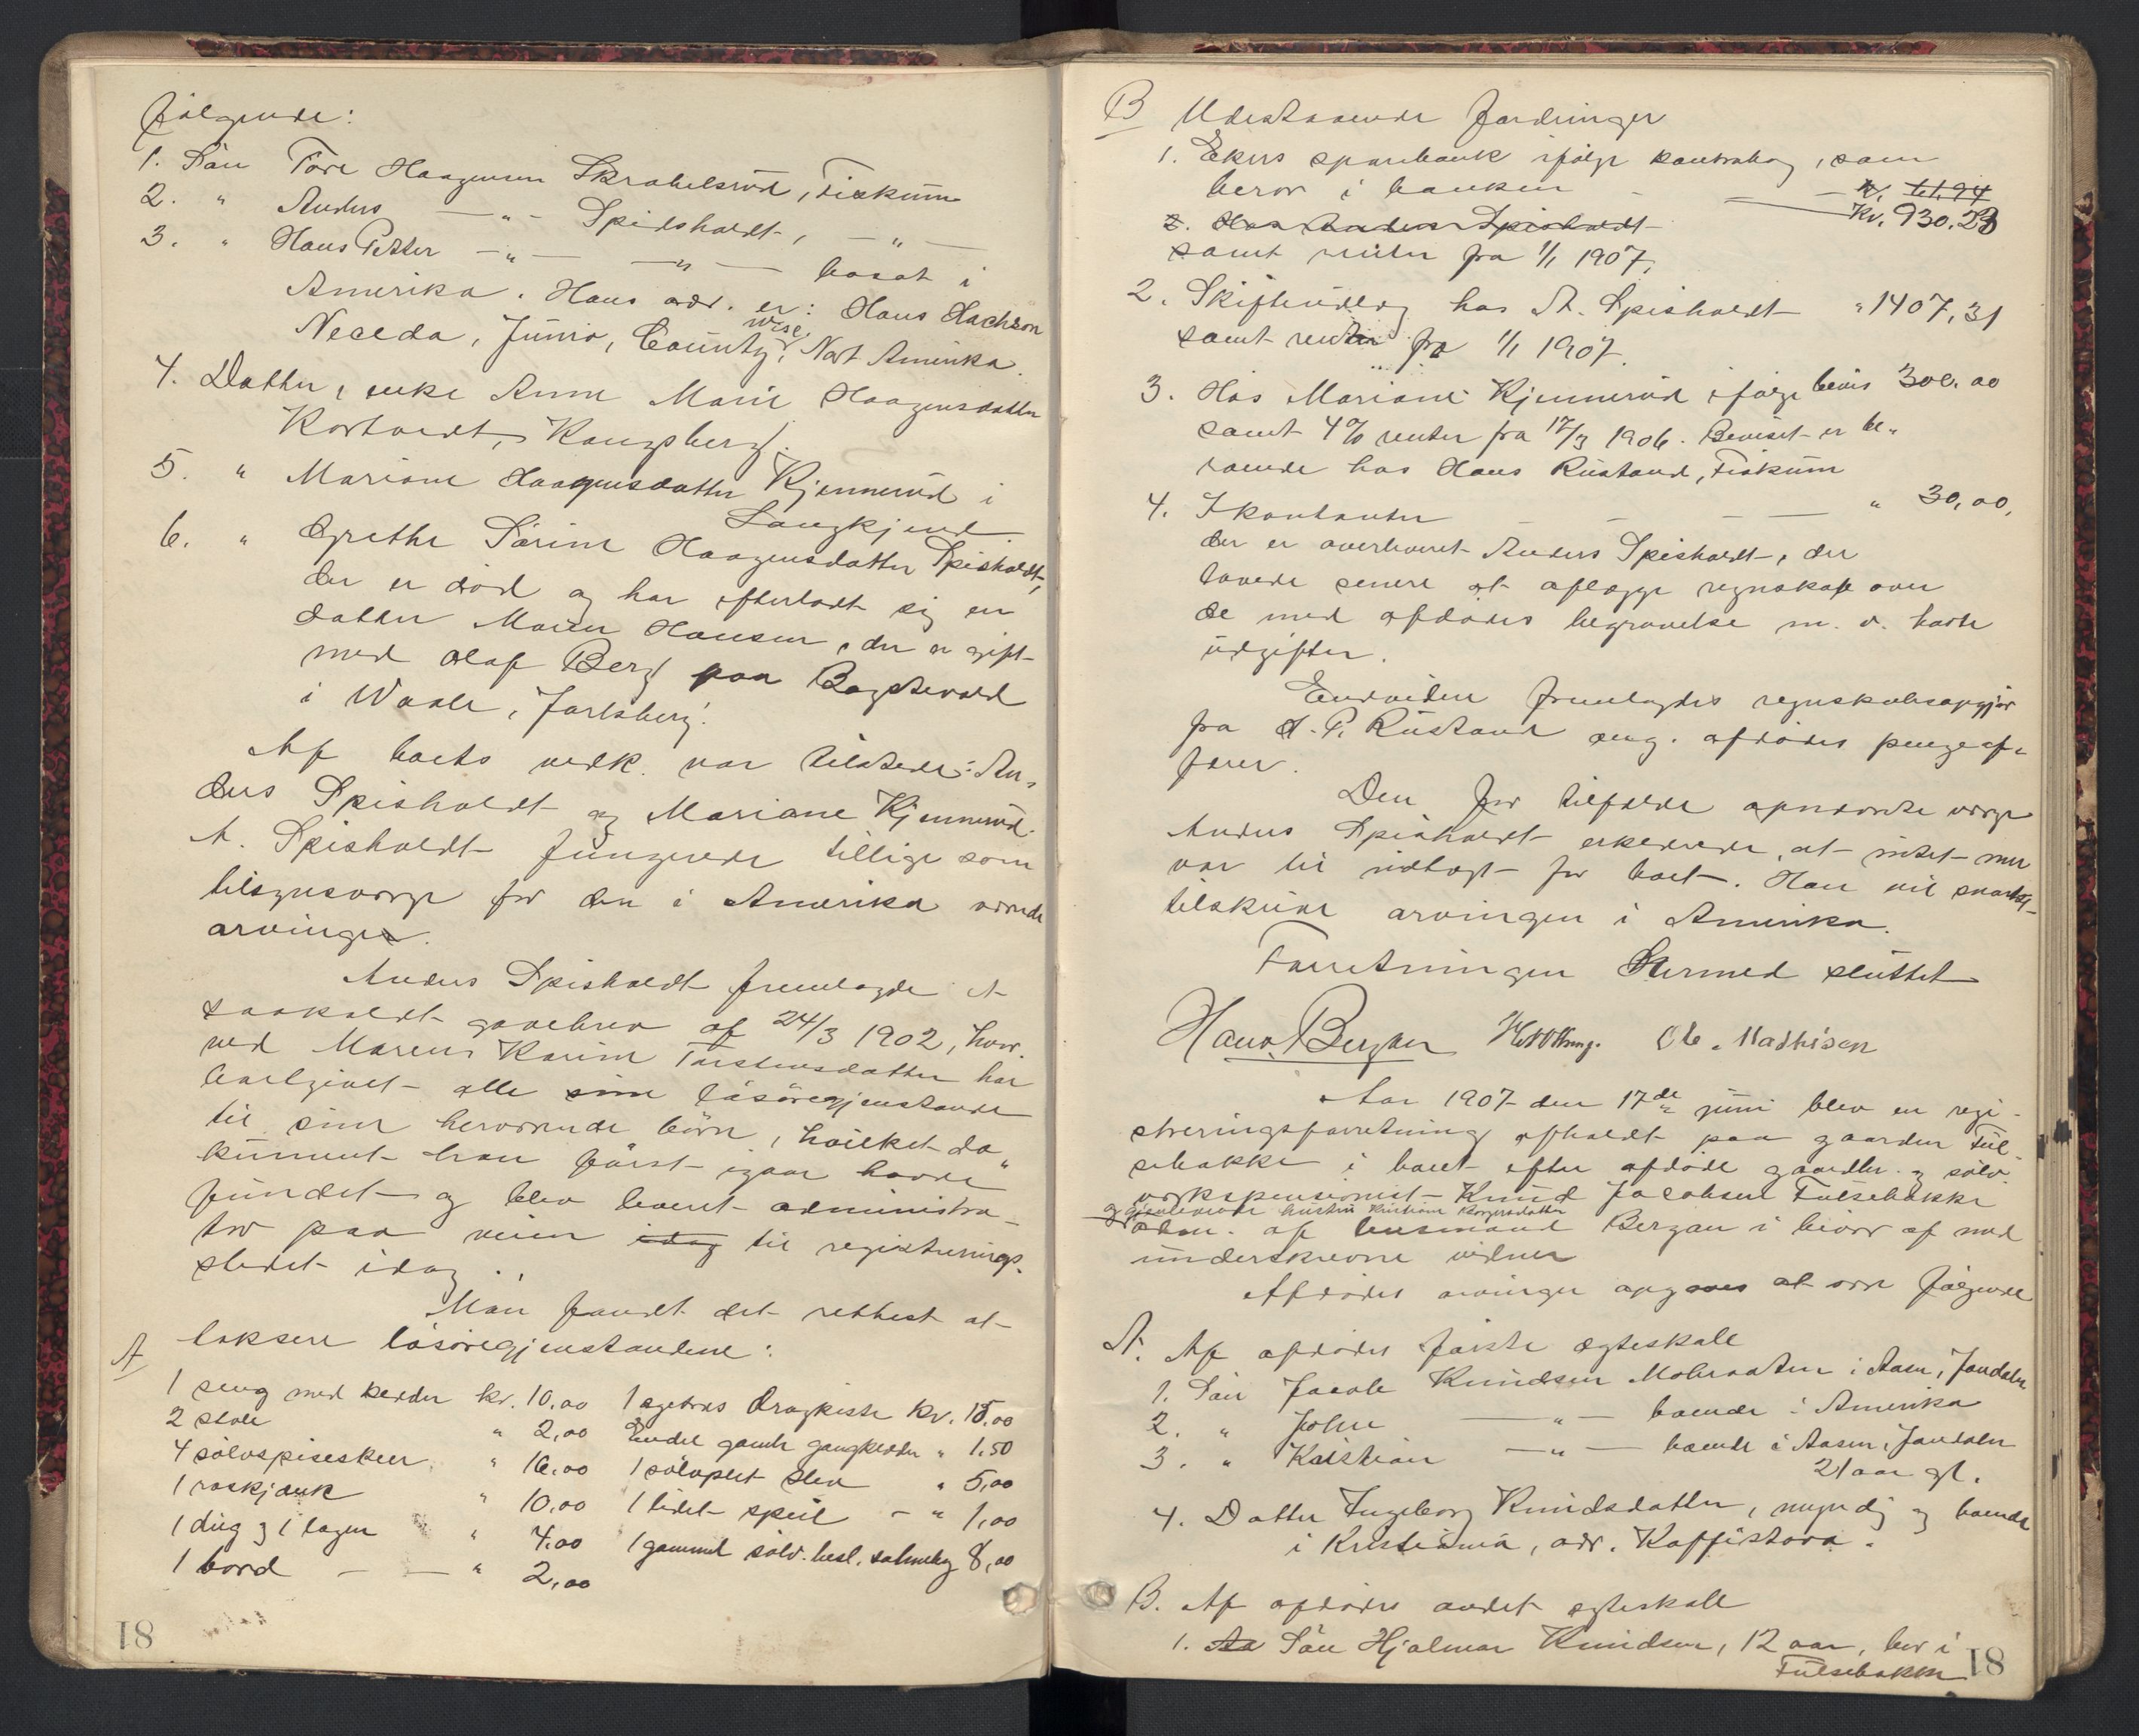 følgende:
1. Søn Tore Haagensen Skrabelsrud, Fiskum
2. " Anders —"— Spidsholdt, —"—
3. " Hans Petter —"— —"— bosat i
Amerika. Hans adr. er: Hans Hachson
Neceda, Junio, County, Wisc. Nort Amerika.
4. Datter, enke Anne Marie Haagensdatter
Kortvedt, Kongsberg.
5. " Mariane Haagensdatter Kjennerud i
Langkjend
6. " Grethe Sørine Haagensdatter Spisholdt,
der er død og har efterladt sig en
datter Maren Hansen, der er gift
med Olaf Berg paa Bogstevold
i Waale, Jarlsberg.
Af boets vedk. var tilstede: An-
ders Spisholdt og Mariane Kjennerud.
A. Spisholdt fungerede tillige som
tilsynsværge for den i Amerika værende
arvinger.
Anders Spisholdt fremlagde et
saakaldt gavebrev af 24/3 1902, hvor-
ved Maren Karine Torstensdatter har
bortgivet alle sine løsøregjenstande
til sine herværende børn, hvilket do-
kument han først igaar havde
fundet og blev leveret administra-
tor paa veien idag til registrerings-
stedet idag.
Man fandt det rettest at
A taksere løsøregjenstandene:
1 seng med klæder kr. 10,00 1 egebræs dragkiste kr. 15,00
2 stole " 2,00 Endel gamle gangklæder " 1,50
4 sølvspiseskeer " 16,00 1 sølvplet slev " 5,00
1 raskjøuk " 10,00 1 lidet speil — " 1,00
1 dug og 1 lagen " 4,00 1 gammel sølv. besl. salmebog 8,00
1 bord — — " 2,00
81
B Udestaaende fordringer
1. Ekers sparebank ifølge kontrabog, som
beror i banken — — kr. 61.94
Kr. 930.23
2. Hos Anders Spisholdt
samt renter fra 1/1 1907,
2. Skifteudlæg hos A. Spisholdt " 1407,31
samt renter fra 1/1 1907.
3. Hos Mariane Kjennerud ifølge bevis 300.00
samt 4% renter fra 12/3 1906. Beviset er be-
roende hos Hans Rustand, Fiskum
4. I kontanter — — — " 30,00,
der er overleveret Anders Spisholdt, der
lovede senere at aflægge regnskab over
de med afdødes begravelse m. v. havte
udgifter.
Endvidere fremlagdes regnskabsopgjør
fra A. P. Rustand ang. afdødes pengeaf-
færer.
Den for tilfælde opnævnte værge
Anders Spisholdt erklærede, at intet mer
var til indtægt for boet. Han vil snarest
tilskrive arvingen i Amerika.
Forretningen hermed sluttet
Hans Bergan Ole. Mathisen
Aar 1907 den 17de juni blev en regi-
streringsforretning afholdt paa gaarden Ful-
sebakke i boet efter afdøde gaardbr. og sølv-
verkspensionist Knud Jacobsen Fulsebakke
og gjenlevende hustru Kristiane Borgersdatter
adm. af lensmand Bergan i bivær af ned
underskrevne vidner
Afdødes arvinger opgaves at være følgende
A. Af afdødes første ægteskab
1. Søn Jacob Knudsen Mobraaten i Aasen, Jondalen
2. " John —"— boende i Amerika
3. " Kristian —"— boende i Aasen, Jondalen
21 aar gl.
4. Datter Ingeborg Knudsdatter, myndig og boende
i Kristiania, adr. Kaffistova.
B. Af afdødes andet ægteskab
1. Aa Søn Hjalmar Knudsen, 12 aar, bor i
Fulsebakke
81